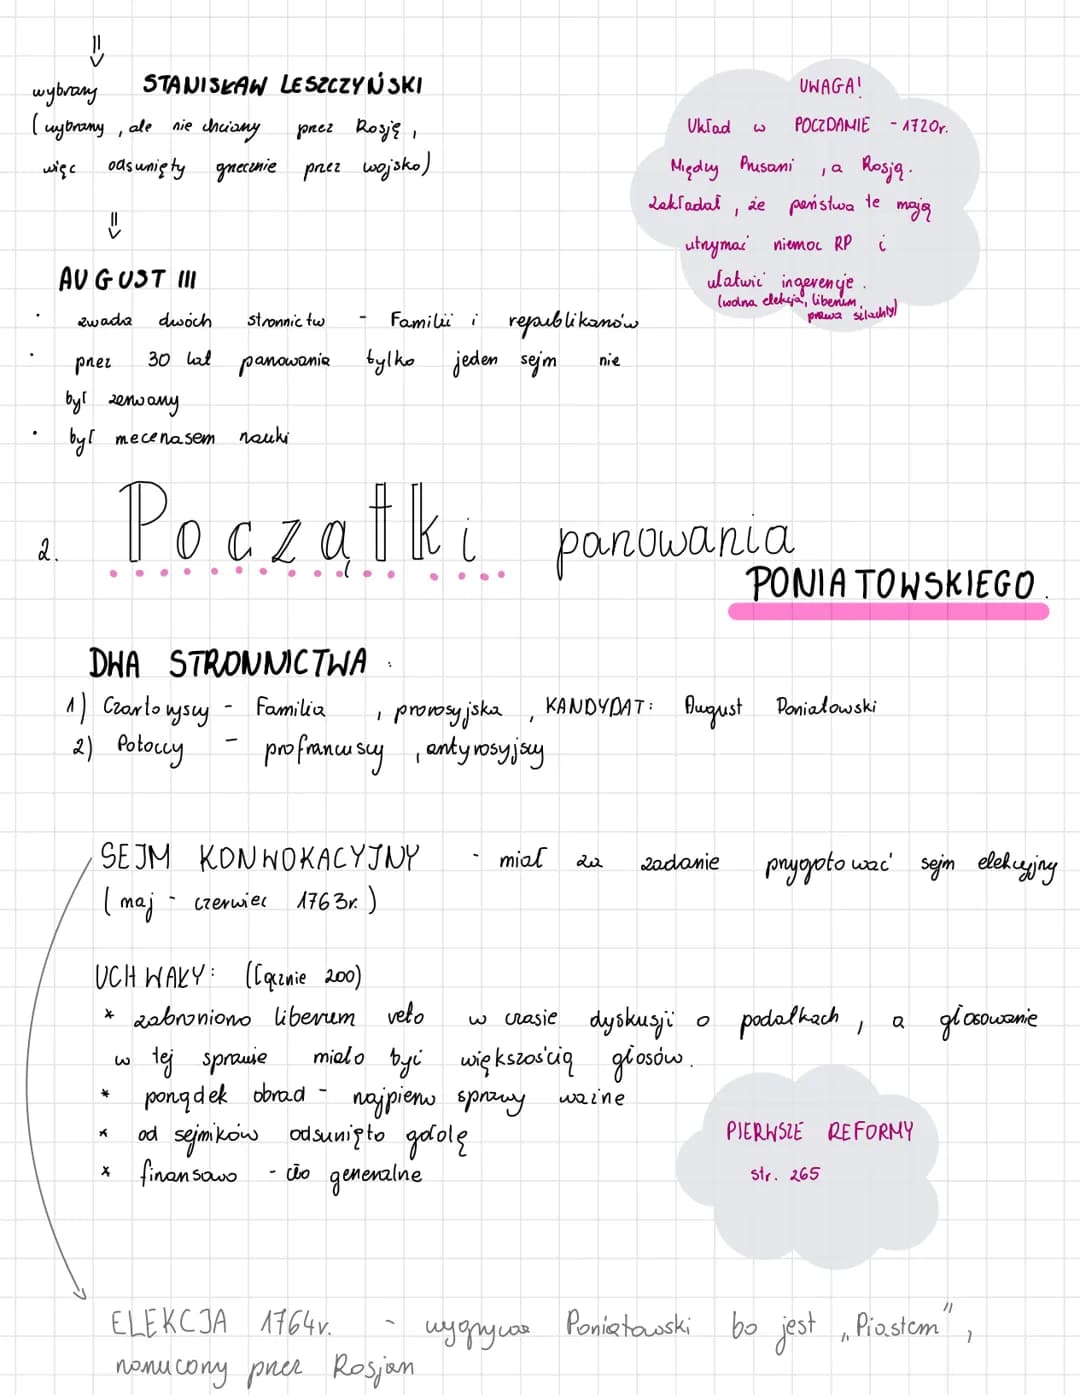 wybrany STANISŁAW LESZCZYŃSKI
(wybrany, ale nie chciany przez Rosję,
więc odsunięty grzecznie przez wojsko)
AUGUST III
· zwada dwóch stronnictw - Familii i republikanów
· przez 30 lat panowania tylko jeden sejm nie
był zerwany
· był mecenasem nauki
UWAGA!
Układ w POCZDAMIE - 1720r.
Między Prusami, a Rosją.
Zakładał, że państwa te mają
utrzymać niemoc RP i
ułatwić ingerencje.
(wolna elekcja, liberum,
prawa szlachty)
2. Początki panowania
PONIATOWSKIEGO.
DWA STRONNICTWA:
1) Czartoryscy - Familia, prorosyjska, KANDYDAT: August Poniatowski
2) Potoccy - profrancuscy, antyrosyjscy
SEJM KONWOKACYJNY - miał za zadanie przygotować sejm elekcyjny
(maj - czerwiec 1763r.)
UCHWAŁY: (łącznie 200)
* zabroniono liberum veto w czasie dyskusji o podatkach, a głosowanie
w tej sprawie miało być większością głosów.
* porządek obrad - najpierw sprawy ważne
* od sejmików odsunięto gołotę
* finansowo - cło generalne
PIERWSZE REFORMY
str. 265
ELEKCJA 1764r. - wygrywa Poniatowski bo jest „Piastem",
narzucony przez Rosjan